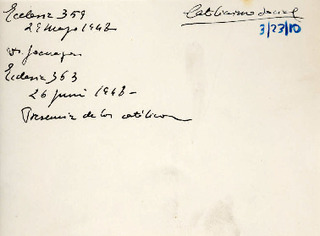 Ecclesia 359
Catolicismo social
29 Mayo 1948
3/23/10
Ecclesia 363
26 juni 1948-
Presencia de los católicos